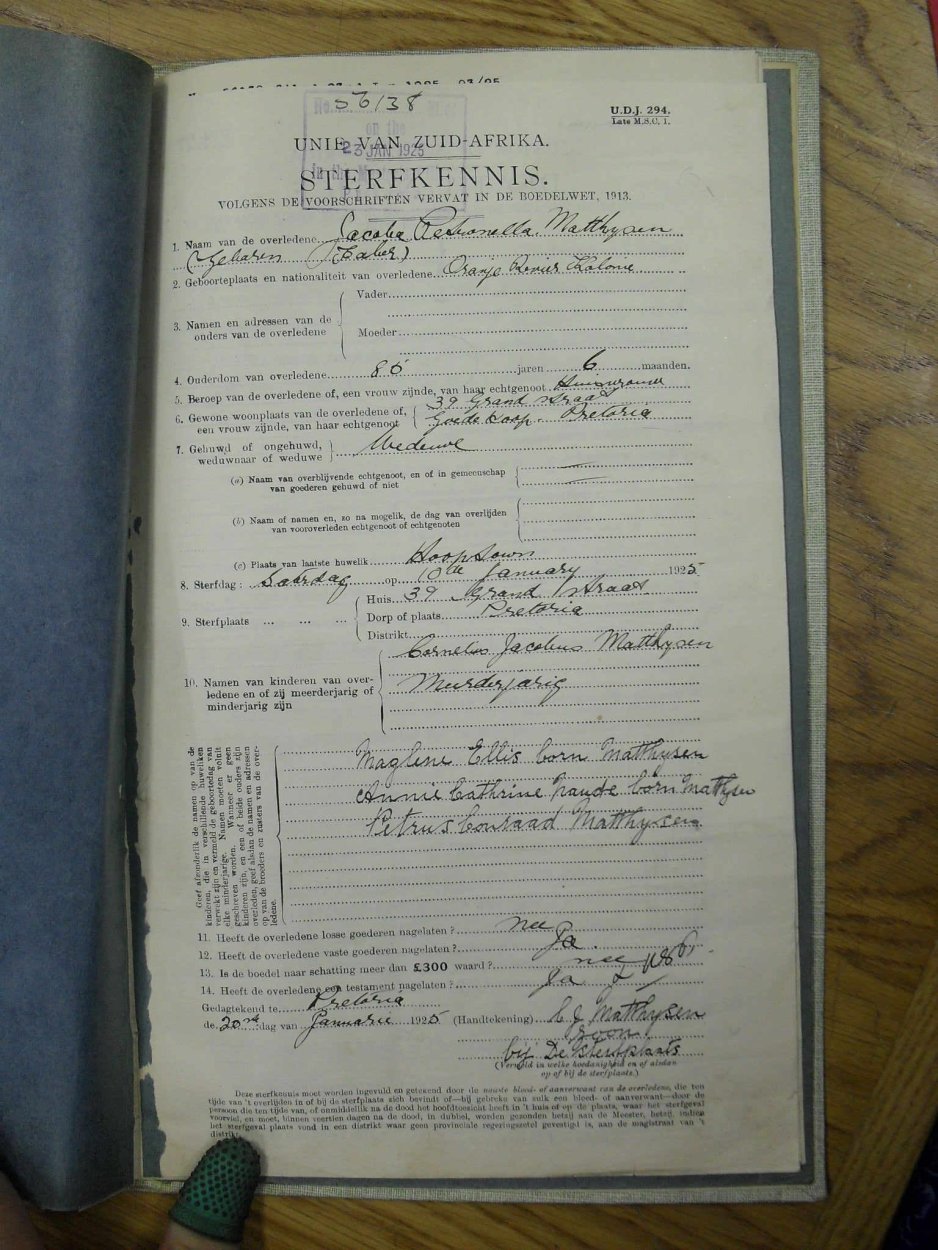 56138
No.
on the
23 JAN 1925
in the
U.D.J. 294.
Late M.S.C. 1.
UNIE VAN ZUID-AFRIKA.
STERFKENNIS.
VOLGENS DE VOORSCHRIFTEN VERVAT IN DE BOEDELWET, 1913.
1. Naam van de overledene Jacoba Petronella Matthysen
(Geboren
2. Geboorteplaats en nationaliteit van overledene Oranje Rivier Kolonie
3. Namen en adressen van de ouders van de overledene
Vader
Moeder
4. Ouderdom van overledene 86 jaren 6 maanden.
5. Beroep van de overledene of, een vrouw zijnde, van haar echtgenoot Huisvrouw
6. Gewone woonplaats van de overledene of, 39 Grand straat
een vrouw zijnde, van haar echtgenoot Goede Hoop. Pretoria
7. Gehuwd of ongehuwd, weduwnaar of weduwe Weduwe
(a) Naam van overblijvende echtgenoot, en of in gemeenschap
van goederen gehuwd of niet
(b) Naam of namen en, zo na mogelik, de dag van overlijden
van vooroverleden echtgenoot of echtgenoten
(c) Plaats van laatste huwelik Hooptown
8. Sterfdag: Saterdag op 10de January 1925
9. Sterfplaats ... ... ... Huis 39 Grand straat
Dorp of plaats Pretoria
Distrikt
10. Namen van kinderen van over-
ledene en of zij meerderjarig of
minderjarig zijn
Cornelis Jacobus Matthysen
Meerderjarig
Geef afzonderlik de namen op van de
kinderen, die in verschillende huweliken
verwekt zijn en vermeld de geboortedag van
elke minderjarige. Namen moeten voluit
geschreven worden. Wanneer er geen
kinderen zijn, en een of beide ouders zijn
overleden, geef alsdan de namen en adressen
op van de broeders en zusters van de over-
ledene.
Maglene Ellis born Matthysen
Annie Cathrine Naude born Matthysen
Petrus Conraad Matthysen
11. Heeft de overledene losse goederen nagelaten? nee
12. Heeft de overledene vaste goederen nagelaten? Ja.
13. Is de boedel naar schatting meer dan £300 waard? nee
14. Heeft de overledene een testament nagelaten? Ja
Gedagtekend te Pretoria
de 20ste dag van Januarie 1925 (Handtekening) C J Matthysen
zoon
bij De Sterfplaats
(Vermeld in welke hoedanigheid en of alsdan
op of bij de sterfplaats.)
Deze sterfkennis moet worden ingevuld en getekend door de naaste bloed- of aanverwant van de overledene, die ten
tijde van 't overlijden in of bij de sterfplaats zich bevindt of—bij gebreke van zulk een bloed- of aanverwant—door de
persoon die ten tijde van, of onmiddellik na de dood het hoofdtoezicht heeft in 't huis of op de plaats, waar het sterfgeval
voorviel, en moet, binnen veertien dagen na de dood, in dubbel, worden gezonden hetzij aan de Meester, hetzij, indien
het sterfgeval plaats vond in een distrikt waar geen provinciale regeringszetel gevestigd is, aan de magistraat van 't
distrikt.